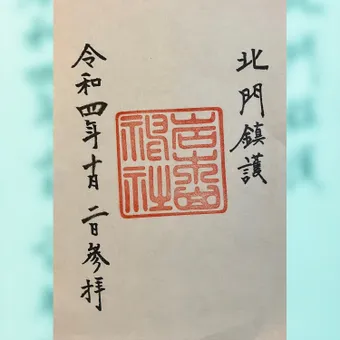 北門鎮護
岩木山
神社
令和四年十月二日参拝